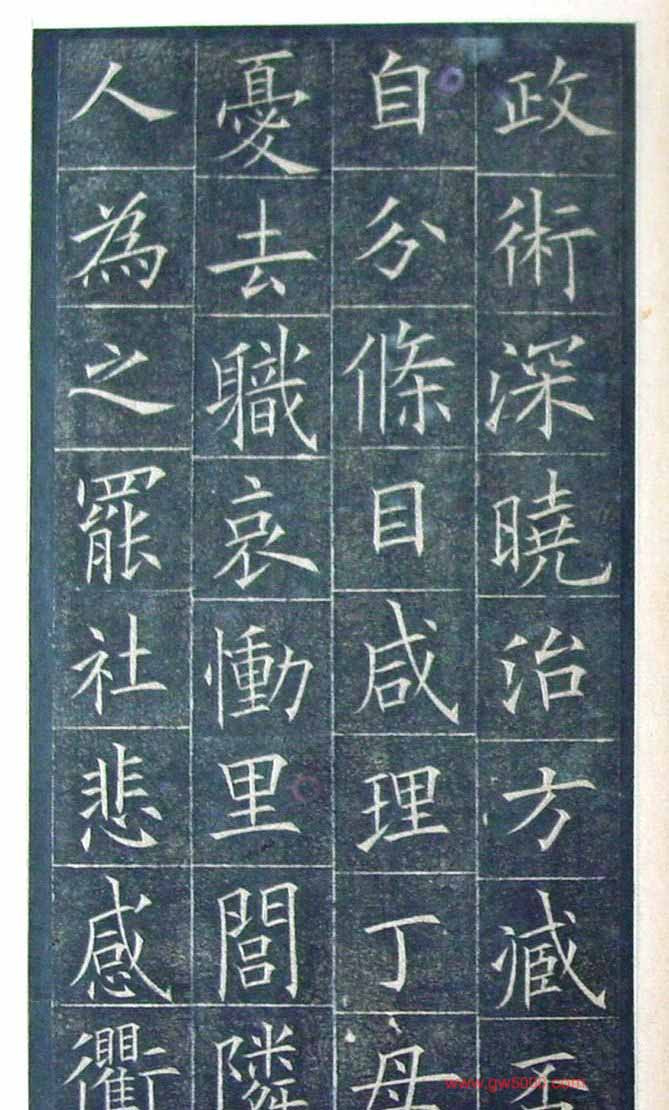 政術深曉治方臧
自分條目咸理丁母
憂去職哀慟里閭隣
人為之罷社悲感衢